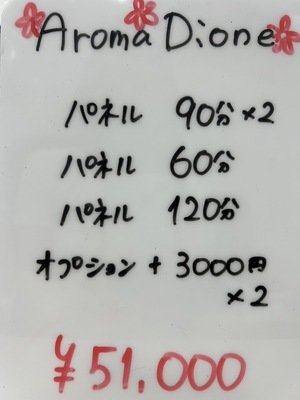 Aroma Dione
パネル 90分×2
パネル 60分
パネル 120分
オプション + 3000円
×2
¥51.000